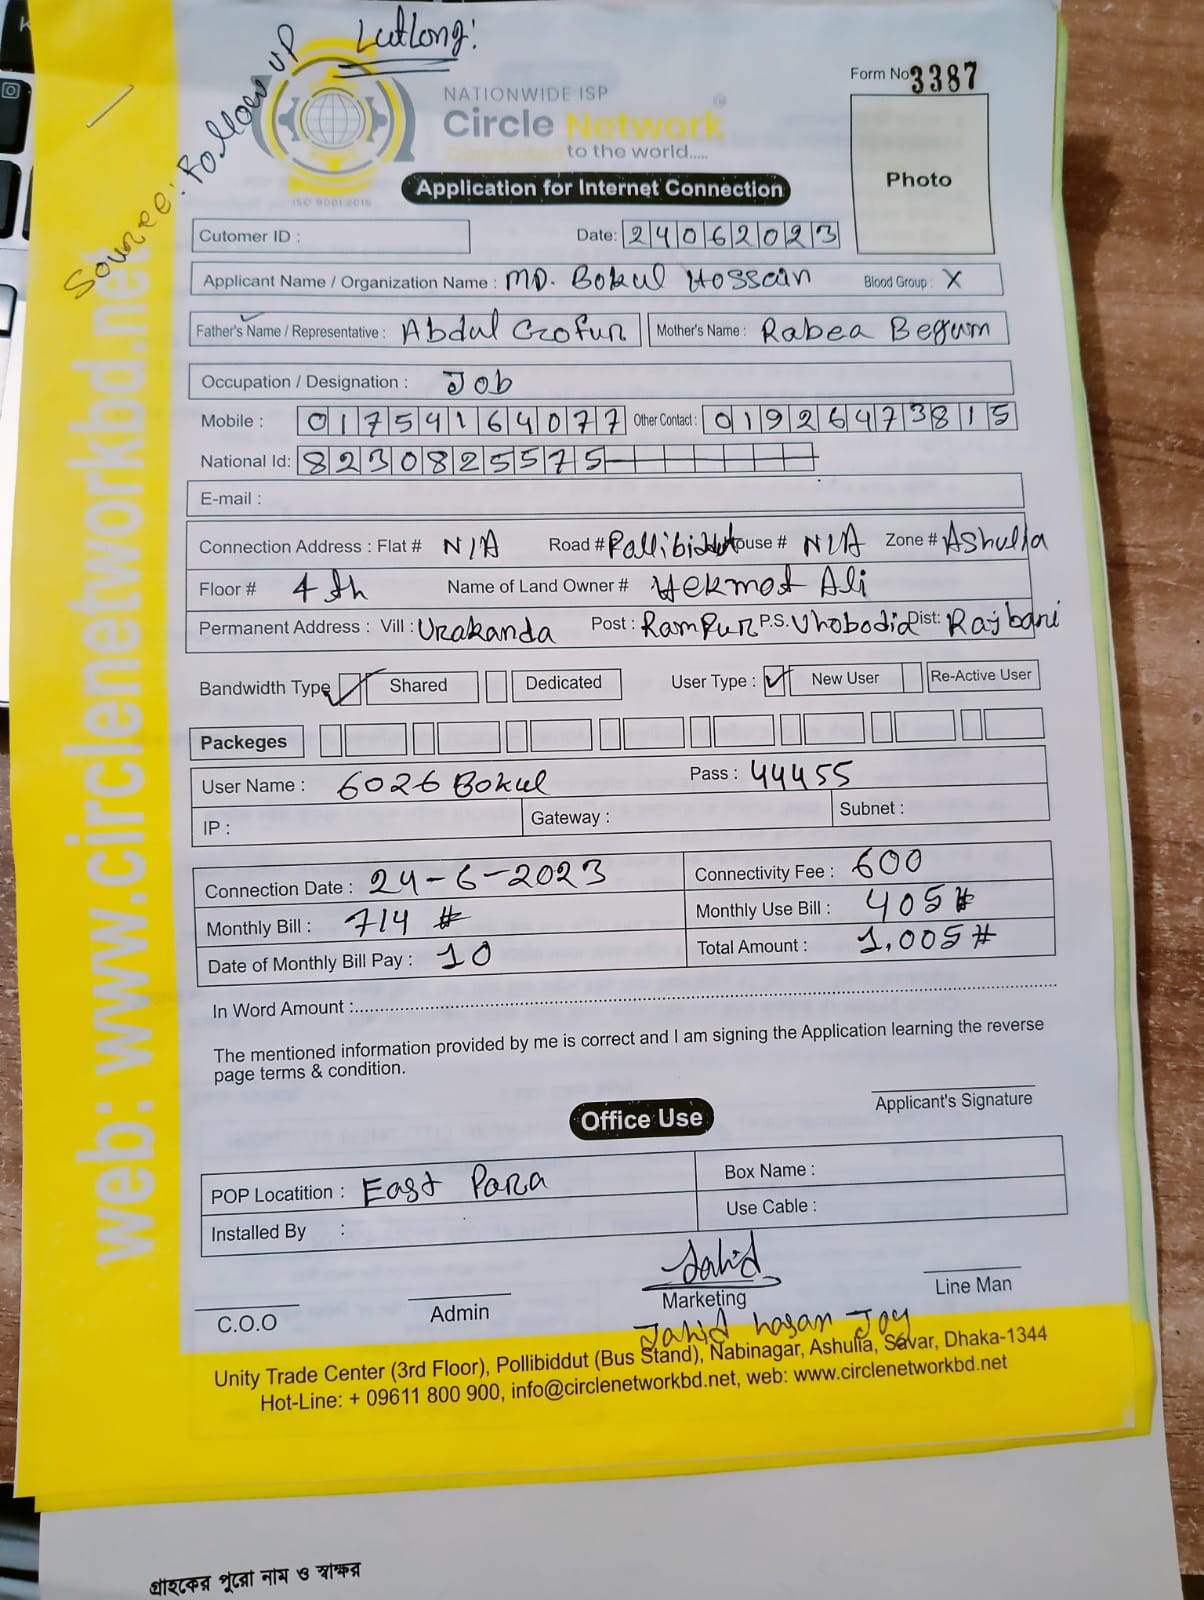 Latlong:
Source: Follow UP
Form No 3387
NATIONWIDE ISP
Circle Network
Connected to the world.....
ISO 9001:2015
Photo
Application for Internet Connection
Cutomer ID :
Date: 24062023
Applicant Name / Organization Name : MD. Bokul Hossain Blood Group : X
Father's Name / Representative : Abdul Gofur Mother's Name : Rabea Begum
Occupation / Designation : Job
Mobile : 01754164077 Other Contact : 01926473815
National Id: 8230825575
E-mail :
Connection Address : Flat # N/A Road # Pallibiddut House # N/A Zone # Ashulia
Floor # 4th Name of Land Owner # Hekmot Ali
Permanent Address : Vill : Urakanda Post : Rampur P.S. Dist: Rajbari
Bandwidth Type Shared Dedicated User Type : New User Re-Active User
Packeges
User Name : 6026 Bokul Pass : 44455
IP : Gateway : Subnet :
Connection Date : 24-6-2023 Connectivity Fee : 600
Monthly Bill : 714 # Monthly Use Bill : 405 #
Date of Monthly Bill Pay : 10 Total Amount : 1,005 #
In Word Amount :
The mentioned information provided by me is correct and I am signing the Application learning the reverse
page terms & condition.
Applicant's Signature
Office Use
POP Locatition : East Para Box Name :
Installed By : Use Cable :
Jahid
C.O.O Admin Marketing Line Man
Jahid hasan Joy
Unity Trade Center (3rd Floor), Pollibiddut (Bus Stand), Nabinagar, Ashulia, Savar, Dhaka-1344
Hot-Line: + 09611 800 900, info@circlenetworkbd.net, web: www.circlenetworkbd.net
web: www.circlenetworkbd.net
গ্রাহকের পুরো নাম ও স্বাক্ষর